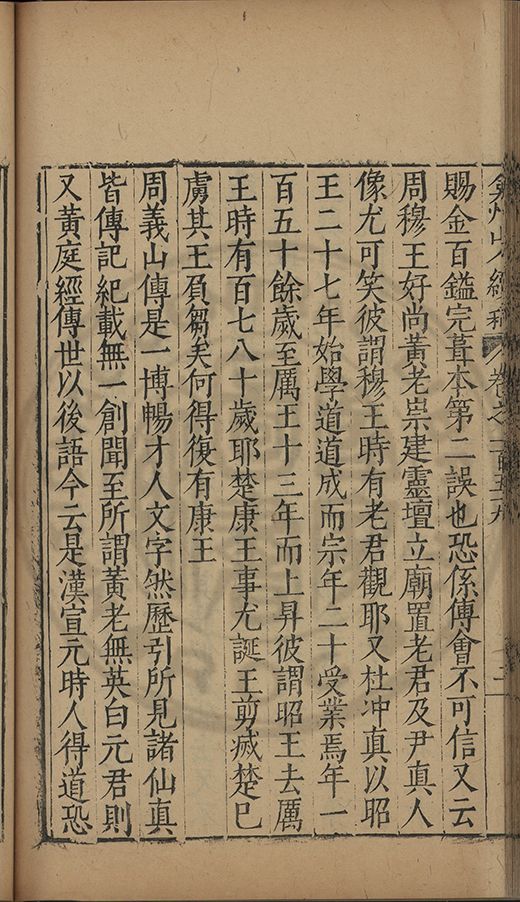 弇州山人續稿 卷之一百五十九 二
賜金百鎰完葺本第二誤也恐係傅會不可信又云
周穆王好尚黃老崇建靈壇立廟置老君及尹真人
像尤可笑彼謂穆王時有老君觀耶又杜冲真以昭
王二十七年始學道道成而宗年二十受業焉年一
百五十餘歲至厲王十三年而上昇彼謂昭王去厲
王時有百七八十歲耶楚康王事尤誕王剪滅楚巳
虜其王負芻矣何得復有康王
周義山傳是一博暢才人文字然歷引所見諸仙真
皆傳記紀載無一創聞至所謂黃老無英白元君則
又黃庭經傳世以後語今云是漢宣元時人得道恐